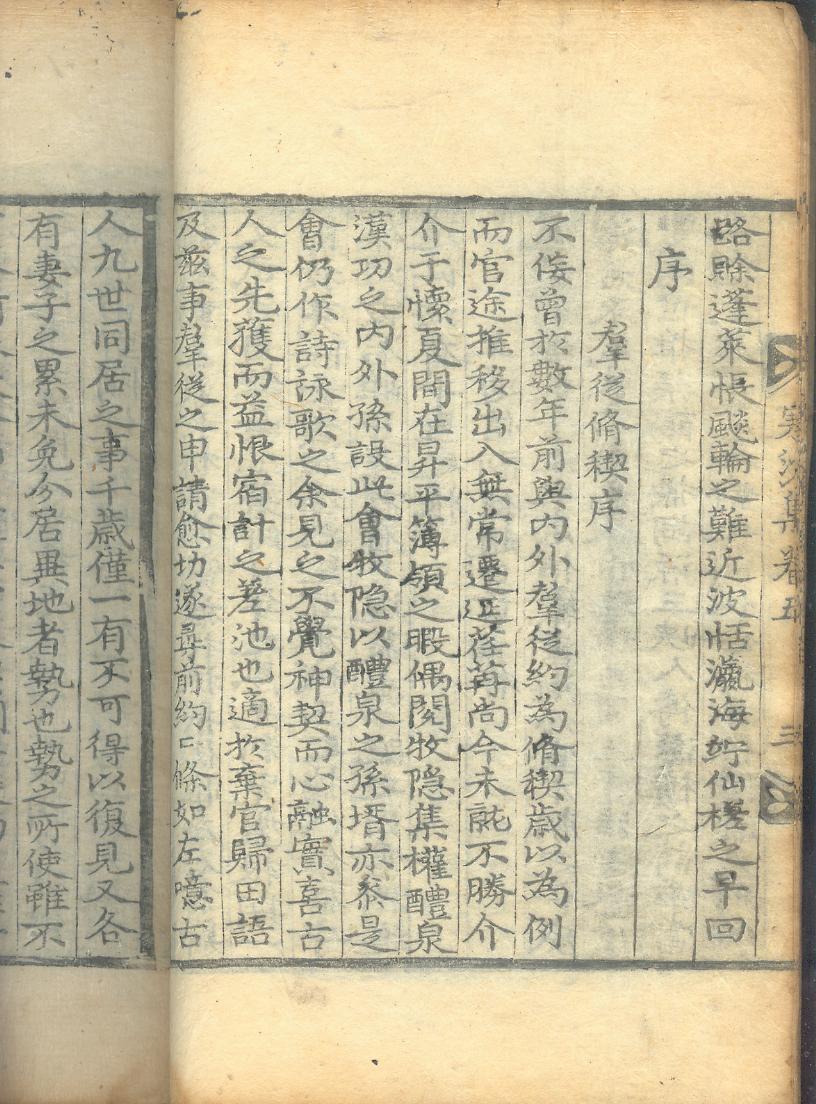 賖蓬萊悵飈輪之難近波恬瀛海竚仙槎之早回
序
羣從脩稧序
不侫曾於數年前與內外羣從約為脩稧歲以為例
而官途推移出入無常遷延荏苒尚今未就不勝介
介于懷夏間在昇平簿領之暇偶閱牧隐集權醴泉
漢功之內外孫設此會牧隐以醴泉之孫壻亦叅是
會仍作詩詠歌之余見之不覺神契而心融實喜古
人之先獲而益恨宿計之差池也適於棄官歸田語
及兹事羣從之申請愈切遂尋前約〻條如左噫古
人九世同居之事千歲僅一有不可得以復見又各
有妻子之累未免分居異地者勢也勢之所使雖不
集卷五
三